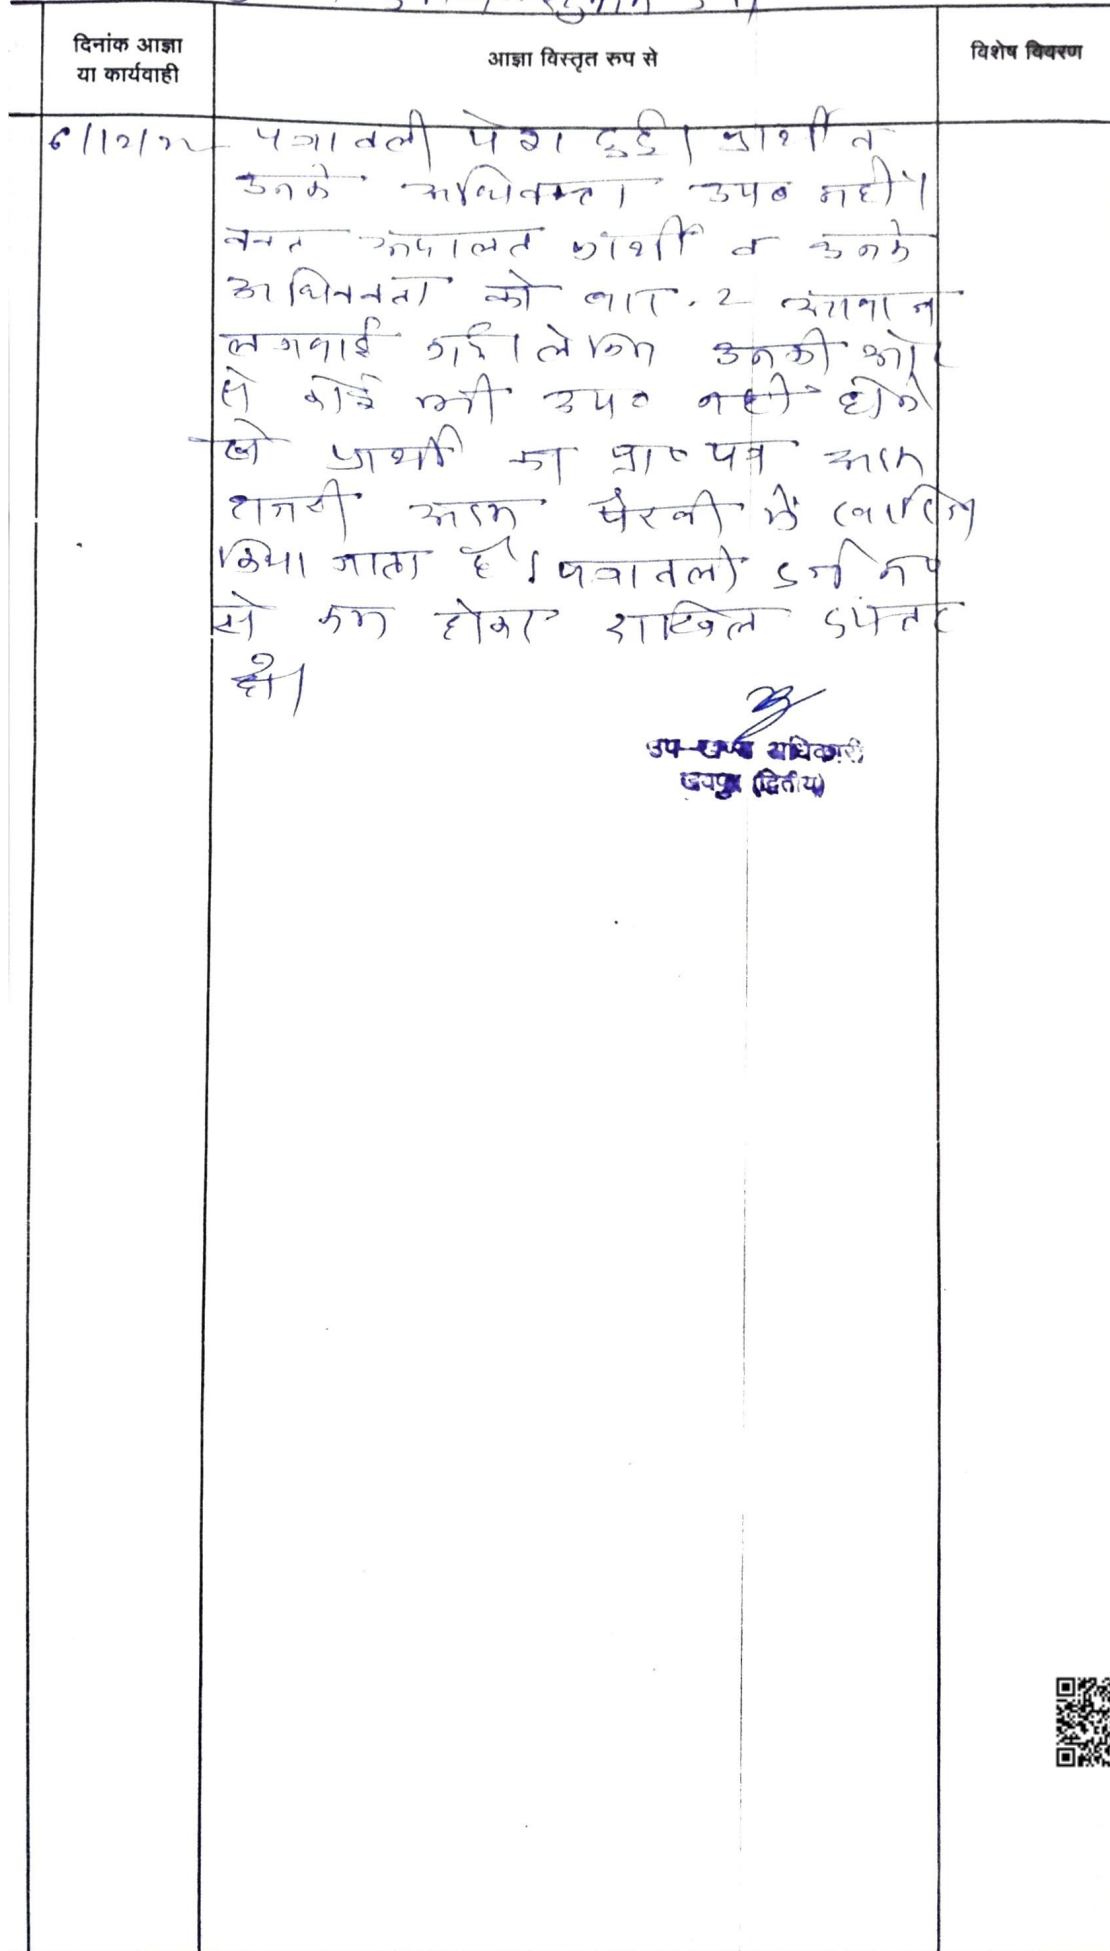 दिनांक आज्ञा
या कार्यवाही
आज्ञा विस्तृत रुप से
विशेष विवरण
6/12/22 पत्रावली पेश हुई। प्रार्थी व
उनके अधिवक्ता उप० नहीं।
वक्त अदालत प्रार्थी व उनके
अधिवक्ता को बार-2 आवाज
लगवाई गई। लेकिन उनकी ओर
से कोई भी उप० नहीं होने
से प्रार्थी का प्रा० पत्र अदम
हाजरी अदम पैरवी में खारिज
किया जाता है। पत्रावली दर्ज
से कम होकर दाखिल दफ्तर
हो।
उप-खण्ड अधिकारी
जयपुर (द्वितीय)